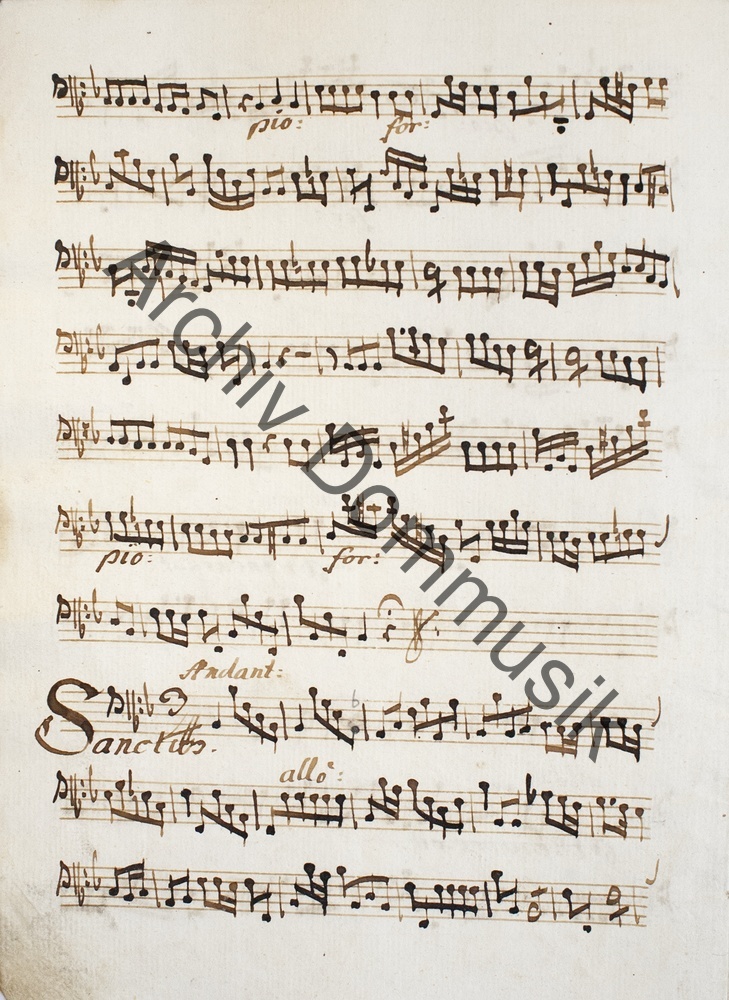 pio: for:
pio: for:
Andant:
Sanctus.
allo:
Archiv Dommusik